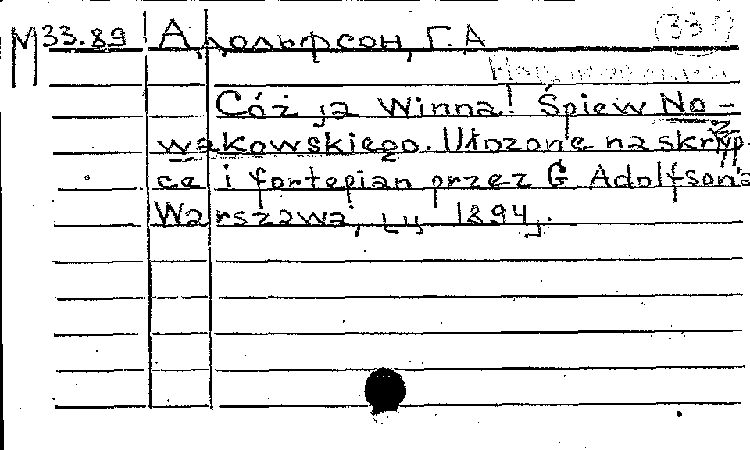 М 33.89 Адольфсон, Г.А (33)
Cóż ja winna! Śpiew No-
wakowskiego. Ułożone na skrzyp
ce i fortepian przez G Adolfsona
Warszawa, [y 1894].